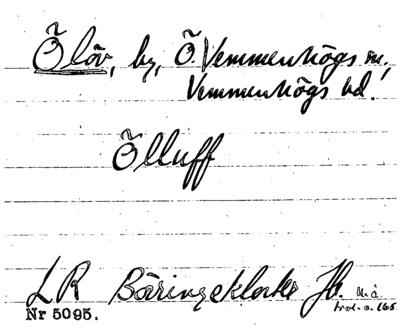 Ölöv, by, Ö. Vemmenhögs sn.,
Vemmenhögs hd.
Ölluff
LRBöringekloster Jb.
Nr 5095.